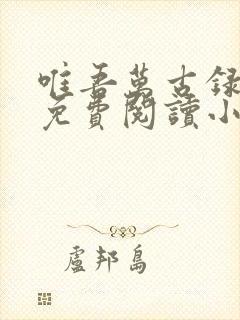 唯吾萬古録
免費閱讀小
盧邦島